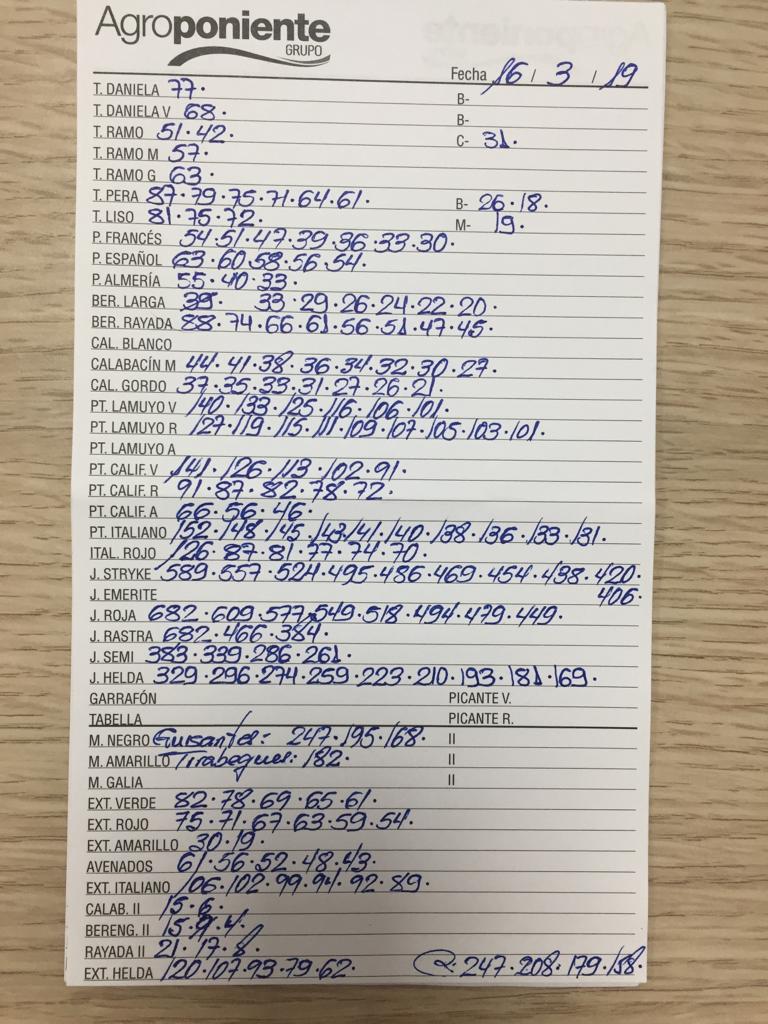 Agroponiente
GRUPO
Fecha 16 / 3 / 19
T. DANIELA 77. B-
T. DANIELA V 68. B-
T. RAMO 51.42. C- 31.
T. RAMO M 57.
T. RAMO G 63.
T. PERA 87.79.75.71.64.61. B- 26.18.
T. LISO 81.75.72. M- 19.
P. FRANCÉS 54.51.47.39.36.33.30.
P. ESPAÑOL 63.60.58.56.54.
P. ALMERÍA 55.40.33.
BER. LARGA 39. 33.29.26.24.22.20.
BER. RAYADA 88.74.66.61.56.51.47.45.
CAL. BLANCO
CALABACÍN M 44.41.38.36.34.32.30.27.
CAL. GORDO 37.35.33.31.27.26.21.
PT. LAMUYO V 140.133.125.116.106.101.
PT. LAMUYO R 127.119.115.111.109.107.105.103.101.
PT. LAMUYO A
PT. CALIF. V 141.126.113.102.91.
PT. CALIF. R 91.87.82.78.72.
PT. CALIF. A 66.56.46.
PT. ITALIANO 152.148.145.143.141.140.138.136.133.131.
ITAL. ROJO 126.87.81.77.74.70.
J. STRYKE 589.557.524.495.486.469.454.438.420.
J. EMERITE 406.
J. ROJA 682.609.577.549.518.494.479.449.
J. RASTRA 682.466.384.
J. SEMI 383.339.286.261.
J. HELDA 329.296.274.259.223.210.193.181.169.
GARRAFÓN PICANTE V.
TABELLA PICANTE R.
M. NEGRO Guisantes: 247.195.168. II
M. AMARILLO Tirabeques: 182. II
M. GALIA II
EXT. VERDE 82.78.69.65.61.
EXT. ROJO 75.71.67.63.59.54.
EXT. AMARILLO 30.19.
AVENADOS 61.56.52.48.43.
EXT. ITALIANO 106.102.99.94.92.89.
CALAB. II 15.6.
BERENG. II 15.9.4.
RAYADA II 21.17.8.
EXT. HELDA 120.107.93.79.62. 247.208.179.158.